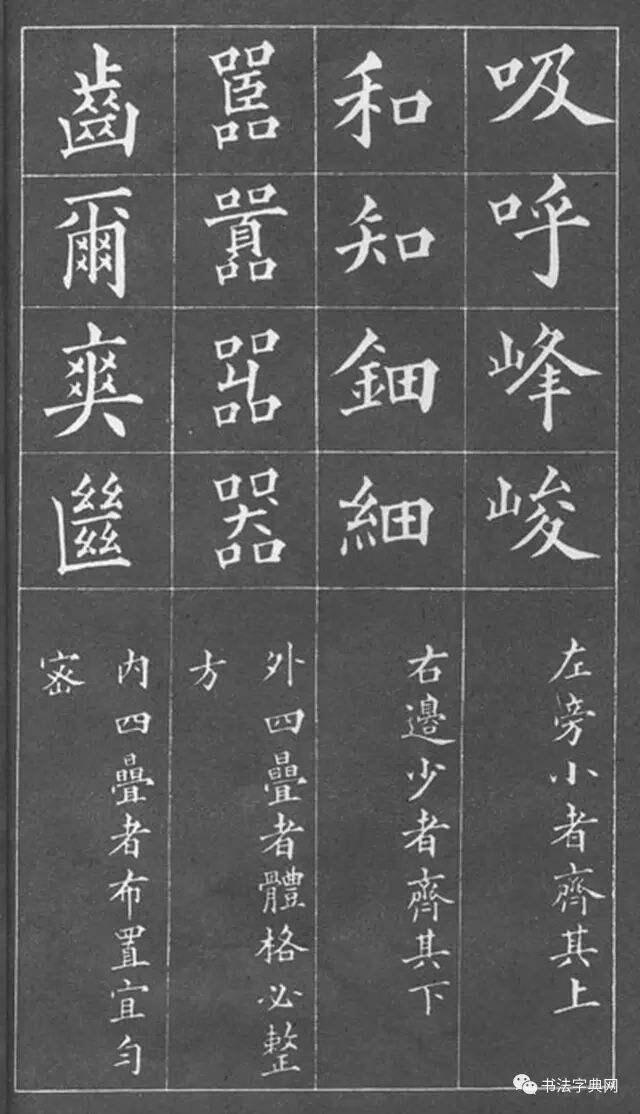 吸呼峰峻
左旁小者齊其上
和知鈿細
右邊少者齊其下
嚚囂嘂器
外四疊者體格必整
方
齒爾爽㡭
内四疊者布置宜勻
密
书法字典网